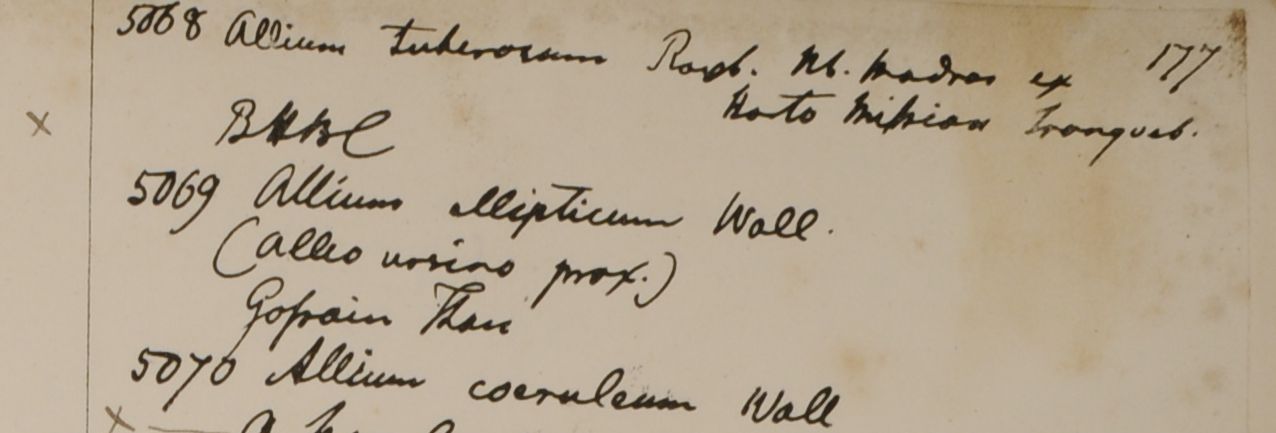 5068 Allium tuberosum Roxb. Hb. Madras ex 177
Horto Mission Tranqueb.
x BHBC
5069 Allium ellipticum Wall.
(Allio ursino prox.)
Gofsain Than
5070 Allium coeruleum Wall
x